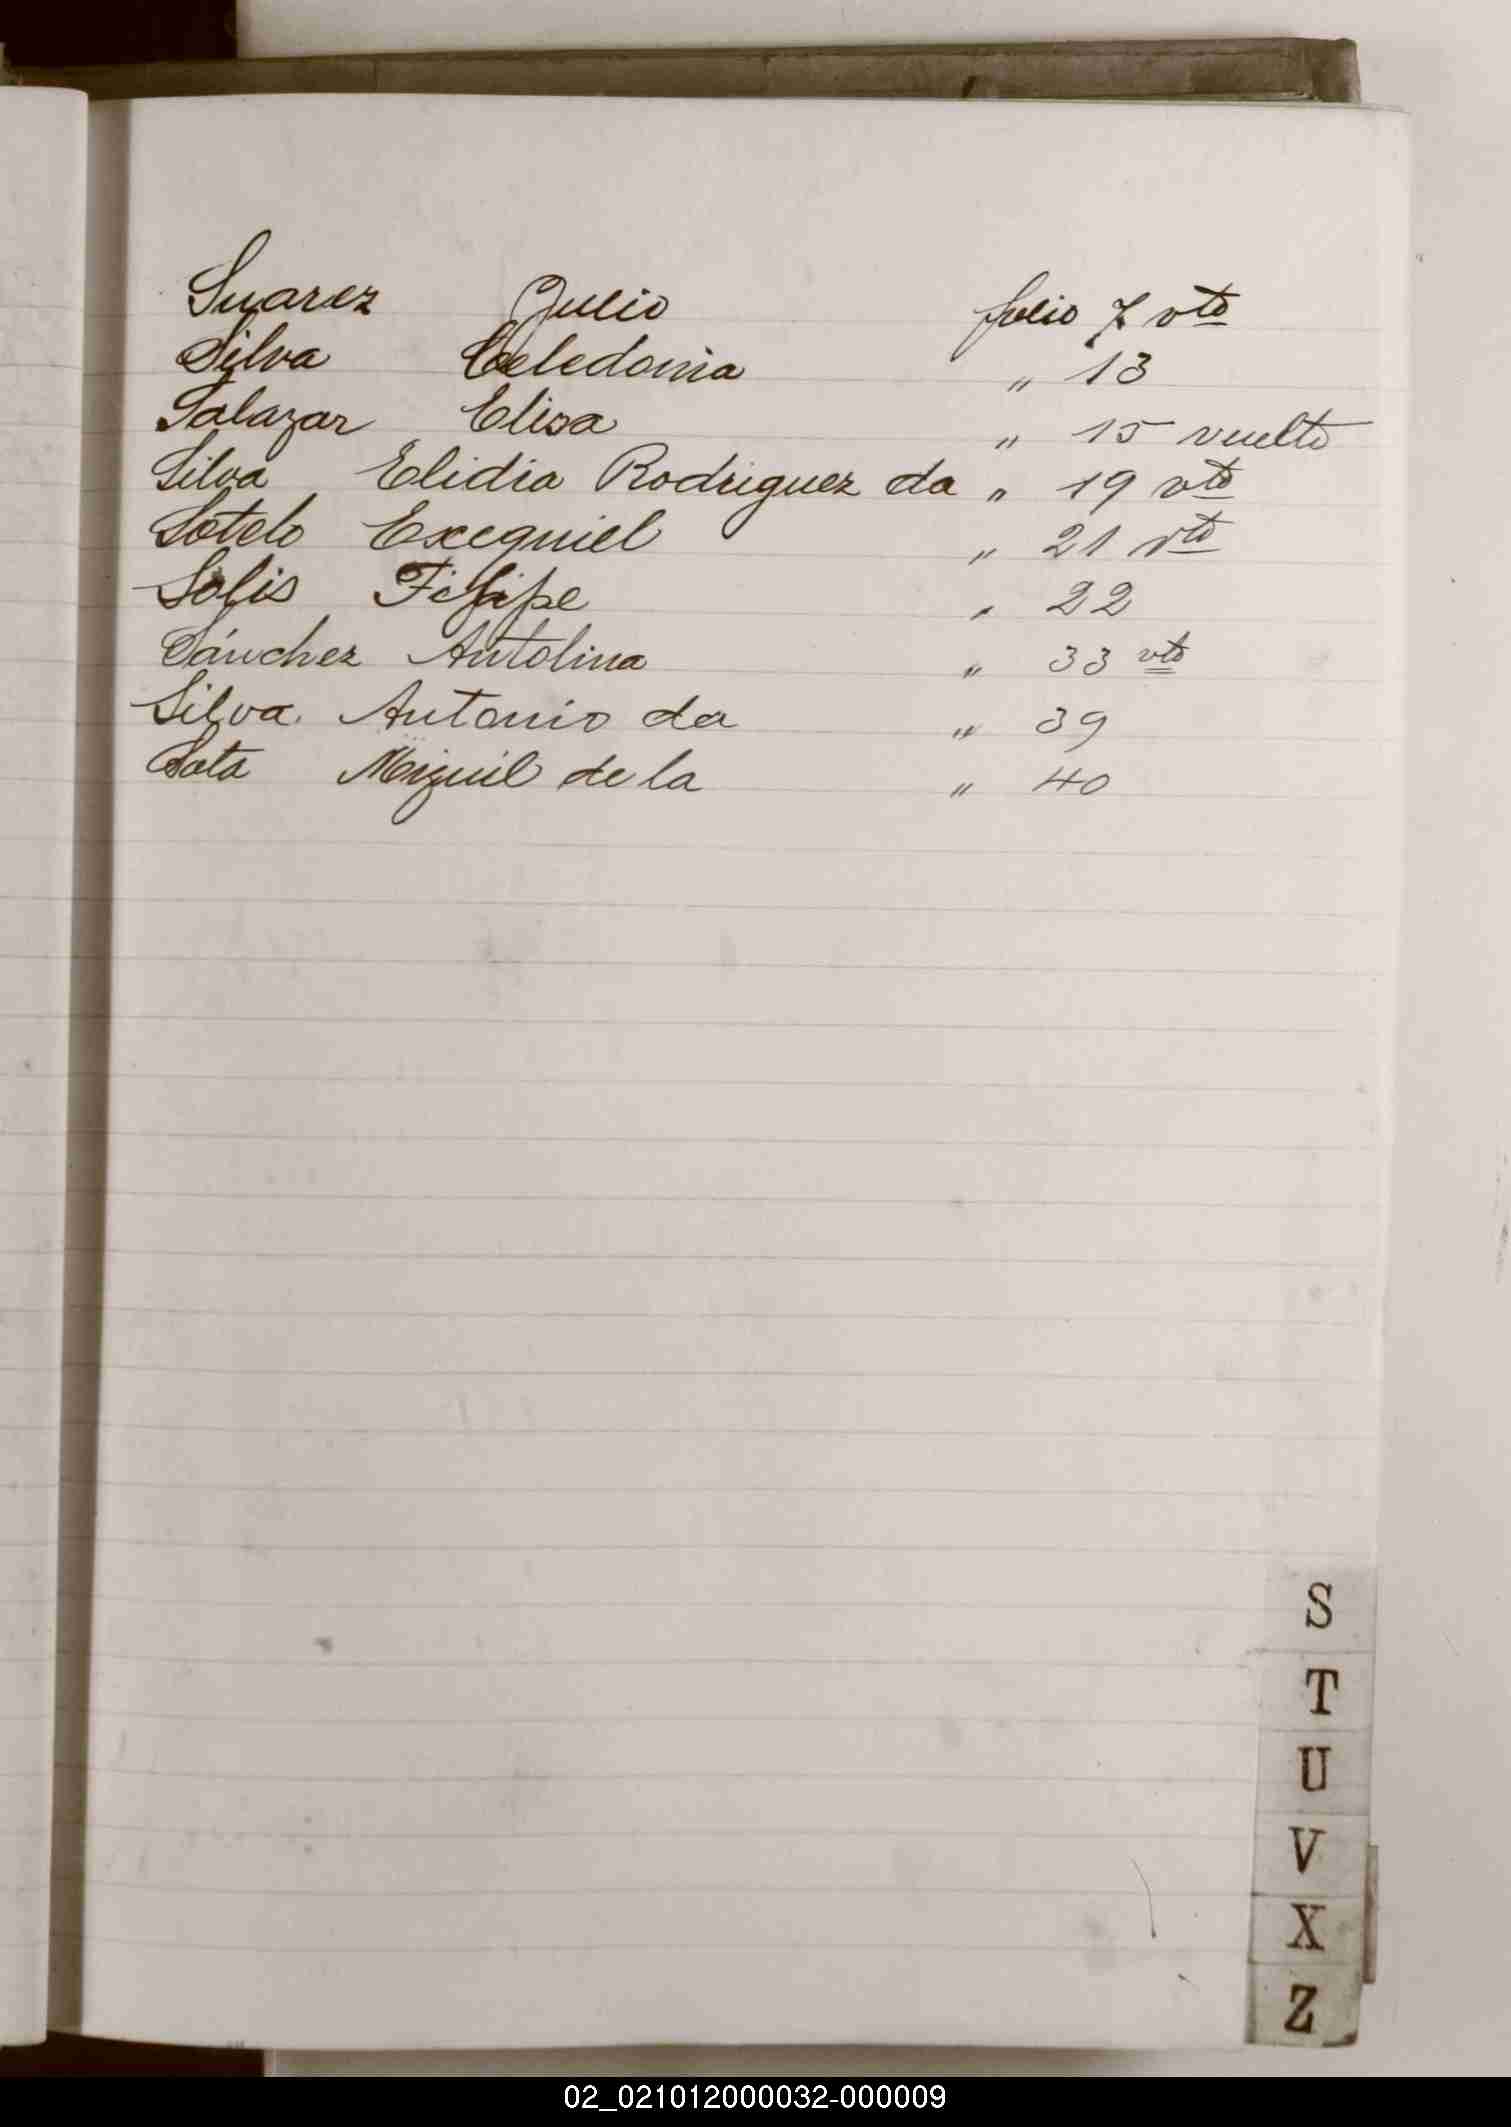 Suarez Julio folio 7 vto
Silva Celedonia " 13
Salazar Elisa " 15 vuelto
Silva Elidia Rodriguez da " 19 vto
Sotelo Exequiel " 21 vto
Solis Felipe " 22
Sánchez Antolina " 33 vto
Silva Antonio da " 39
Sota Miguel de la " 40
S
T
U
V
X
Z
02_021012000032-000009